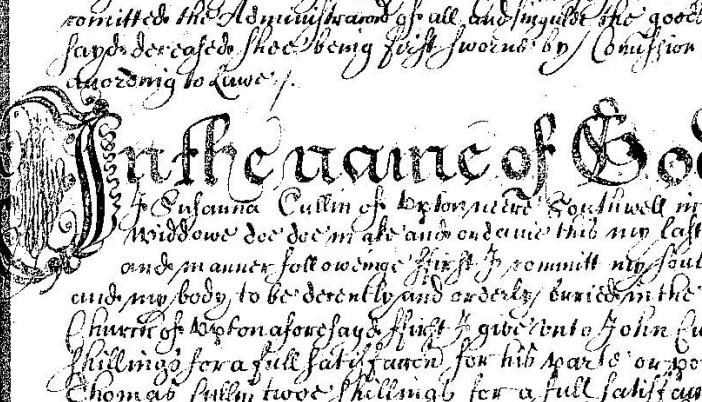 comitted the Administracon of all and singuler the good
sayd deceased shee being first sworne by Comission
according to Lawe /.
In the name of God
I Susanna Cullin of Upton neere Southwell in
Widdowe doe doe make and ordaine this my last
and manner followeinge ffirst I committ my soul
and my body to be decently and orderly burried in the
Church of Upton aforesayd ffirst I give unto John Cu
shillings for a full satisfaccon for his parte or po
Thomas Cullin twoe shillings for a full satisfac